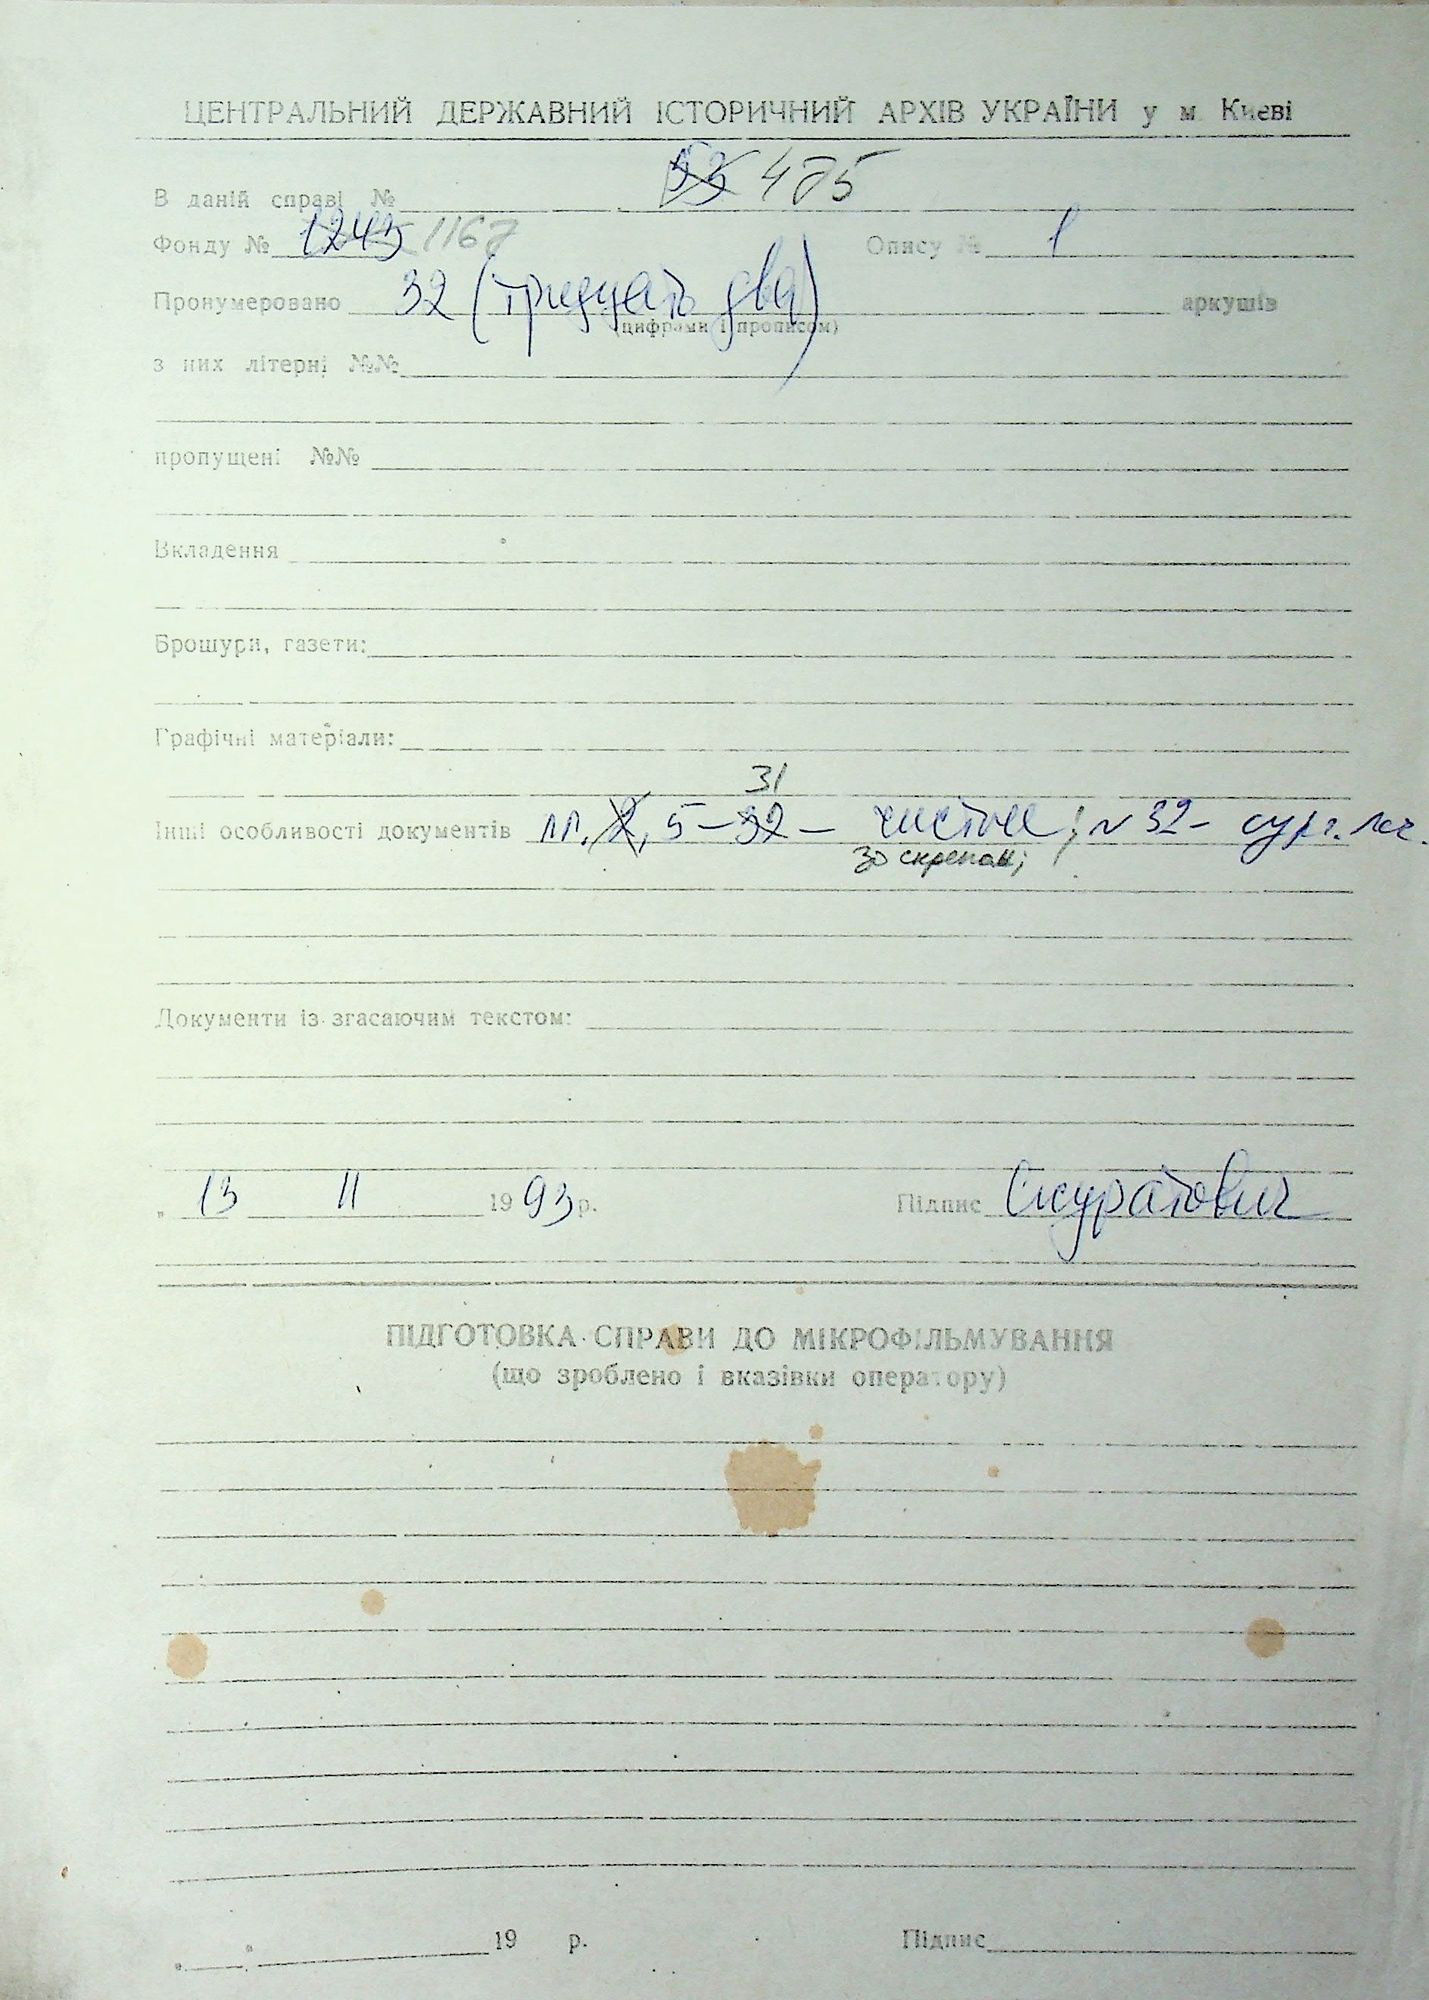 ЦЕНТРАЛЬНИЙ ДЕРЖАВНИЙ ІСТОРИЧНИЙ АРХІВ УКРАЇНИ у м. Києві
В даній справі № 53 475
Фонду № 1243 1167 Опису № 1
Пронумеровано 32 (тридцать два) аркушів
(цифрами і прописом)
з них літерні №№
пропущені №№
Вкладення
Брошури, газети:
Графічні матеріали:
31
Інші особливості документів лл. 2, 5-32 - чистые; л 32 - сург. печ.
зо скрепами;
Документи із згасаючим текстом:
„ 13 11 1993 р. Підпис Скуратович
ПІДГОТОВКА СПРАВИ ДО МІКРОФІЛЬМУВАННЯ
(що зроблено і вказівки оператору)
„ 19 р. Підпис